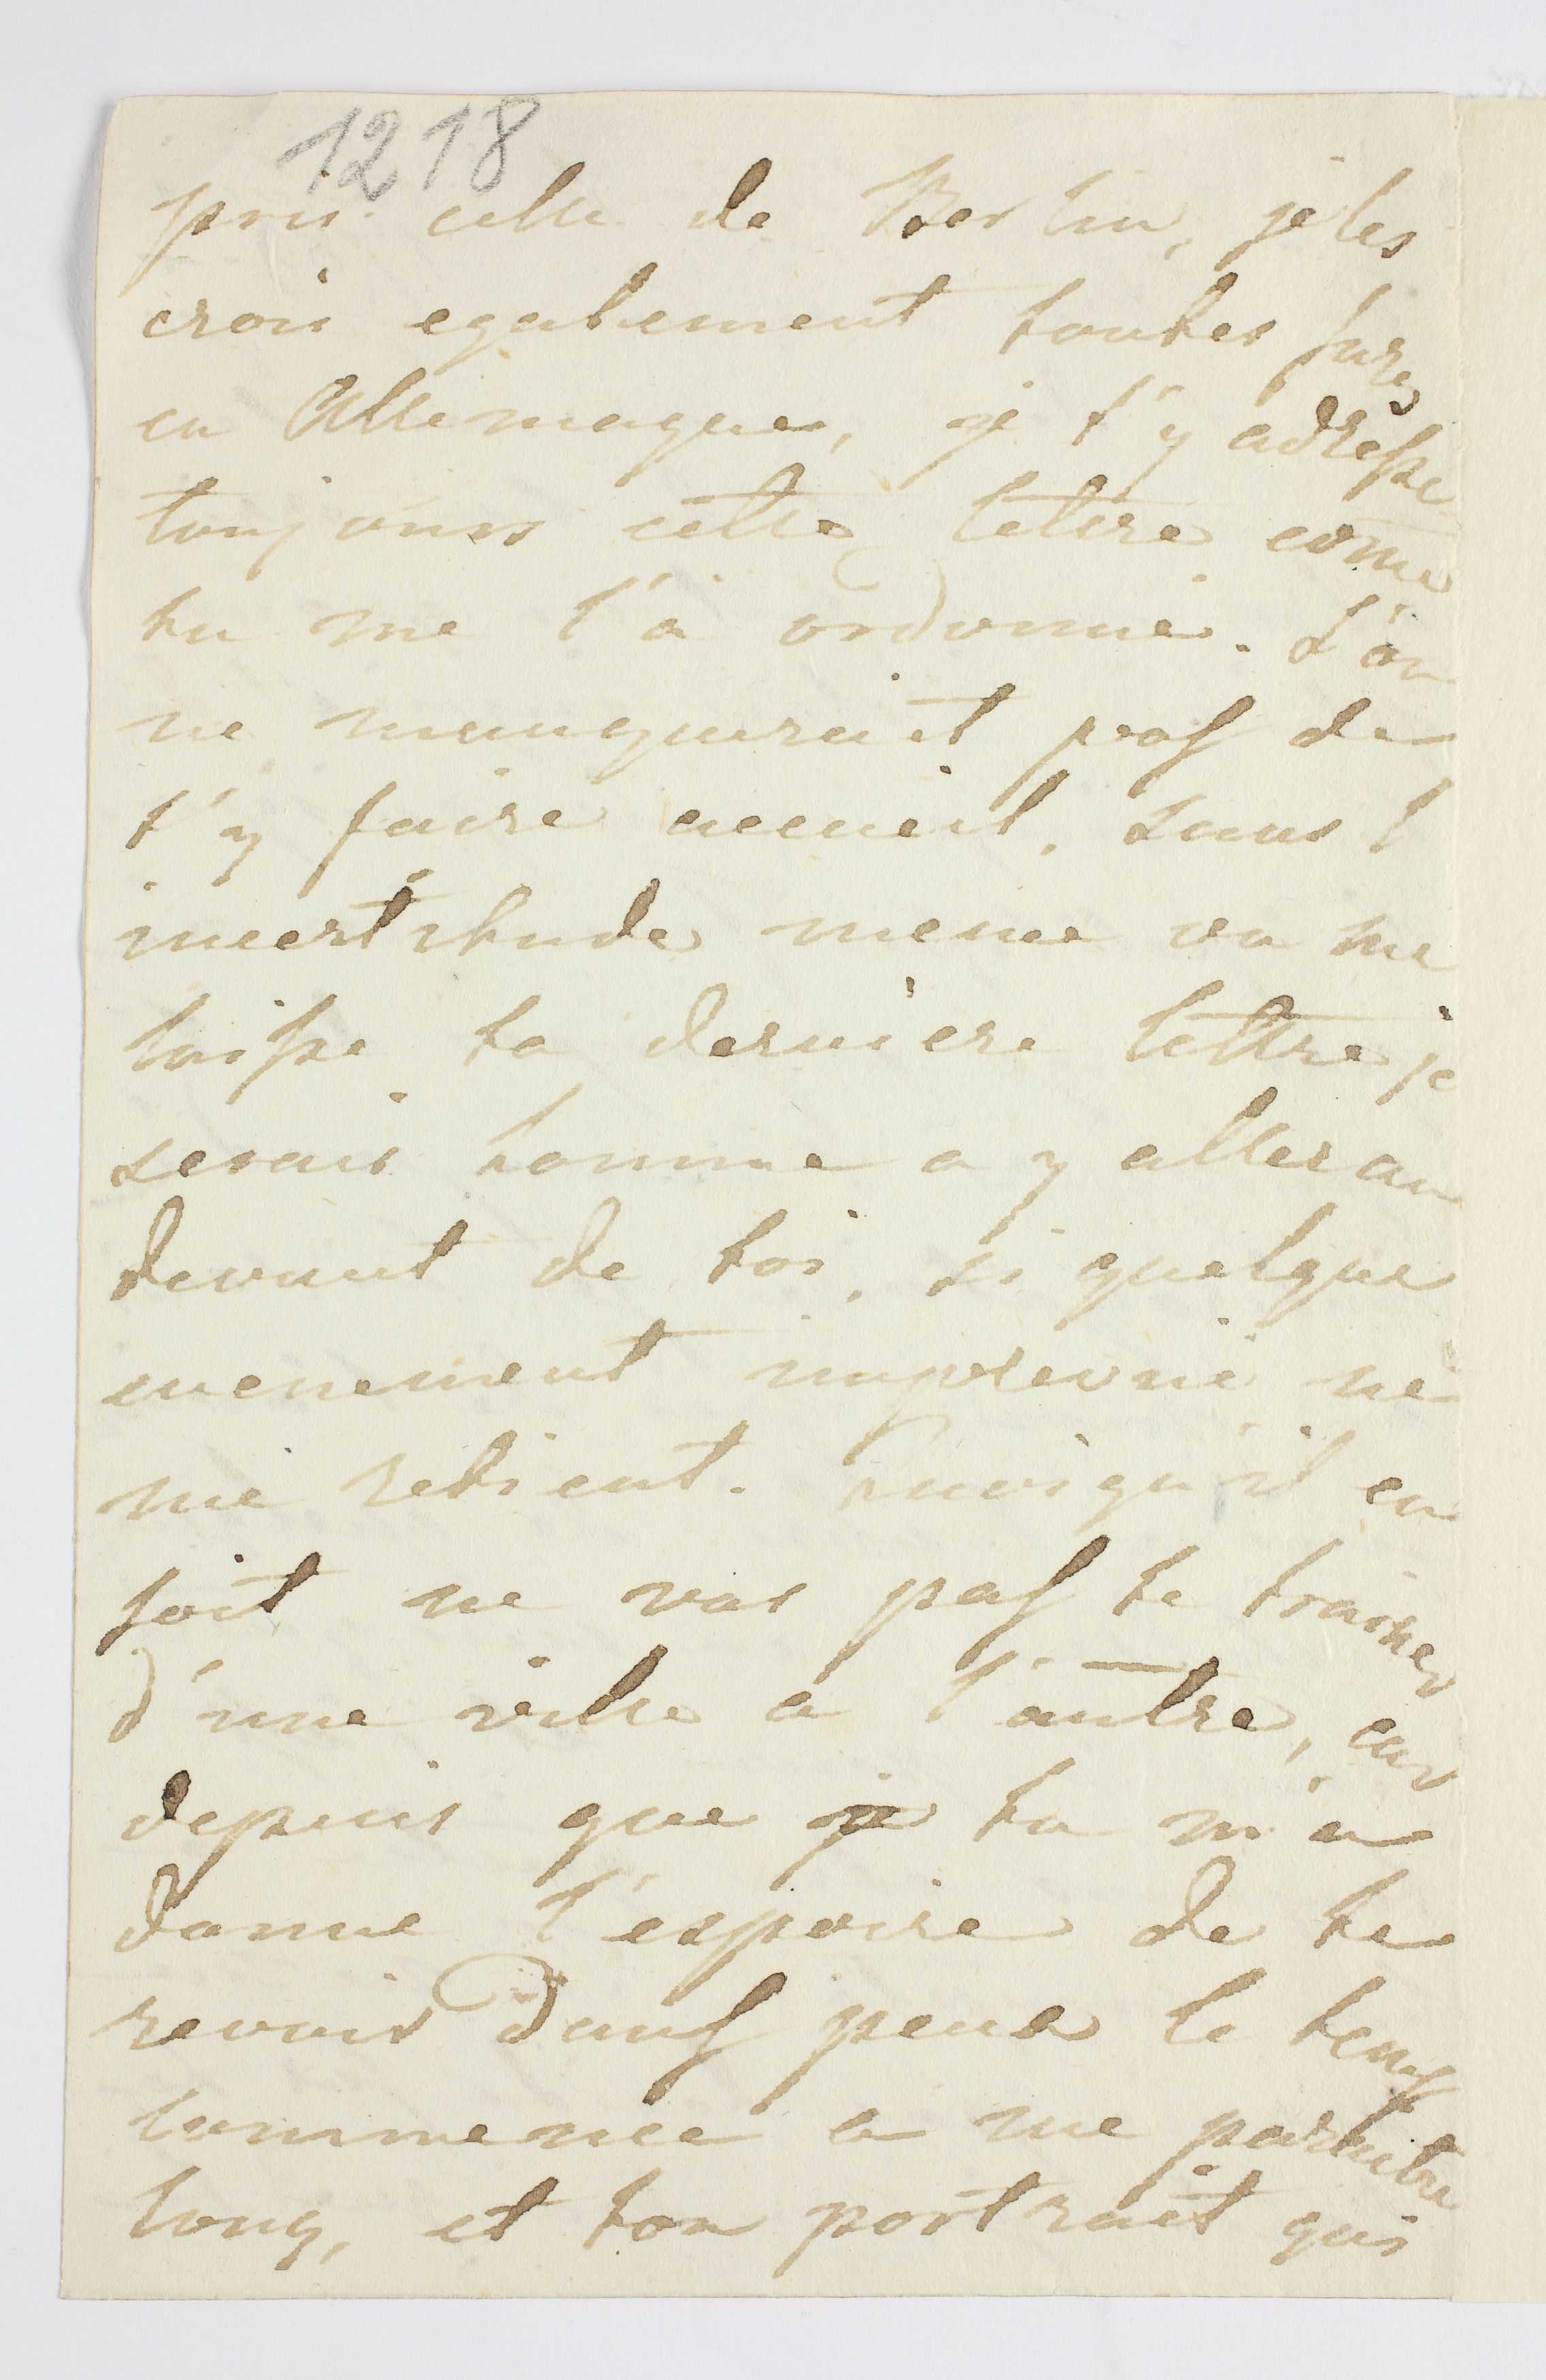 1218
pris celle de Berlin, je les
crois egalement toutes sures
en Allemagne, je t'y adresse
toujours cette lettre come
tu me l'a ordonné. L'on
ne manquerait pas de
t'y faire accueil. Sans l
incertitude meme ou me
laisse ta dernière lettre je
serais homme a y aller au
devant de toi, si quelque
evenement imprevue ne
me retient. Quoiqu'il en
soit ne vas pas te trainer
d'une ville a l'autre, car
depuis que je tu m'a
donne l'espoire de te
revoir dans peux le tems
commence a me paraitre
long, et ton portrait qui